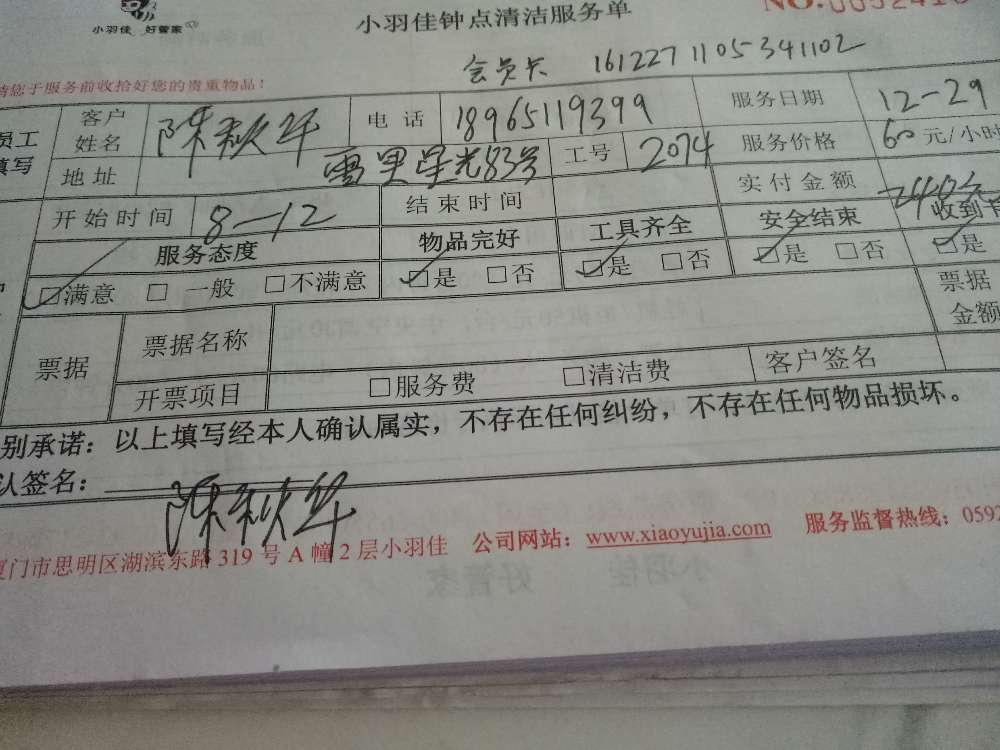 小羽佳 好管家
小羽佳钟点清洁服务单
NO.
会员卡 161227 1105341102
请您于服务前收拾好您的贵重物品！
员工填写
客户姓名 陈秋华 电话 18965119399 服务日期 12-29
地址 83号 工号 2074 服务价格 60元/小时
开始时间 8—12 结束时间 实付金额 240元
服务态度 物品完好 工具齐全 安全结束 收到
☑满意 □ 一般 □不满意 ☑是 □否 ☑是 □否 ☑是 □否 ☑是
票据 票据名称 票据金额
开票项目 □服务费 □清洁费 客户签名
别承诺：以上填写经本人确认属实，不存在任何纠纷，不存在任何物品损坏。
认签名：陈秋华
厦门市思明区湖滨东路 319 号 A 幢 2 层小羽佳 公司网站：www.xiaoyujia.com 服务监督热线：0592